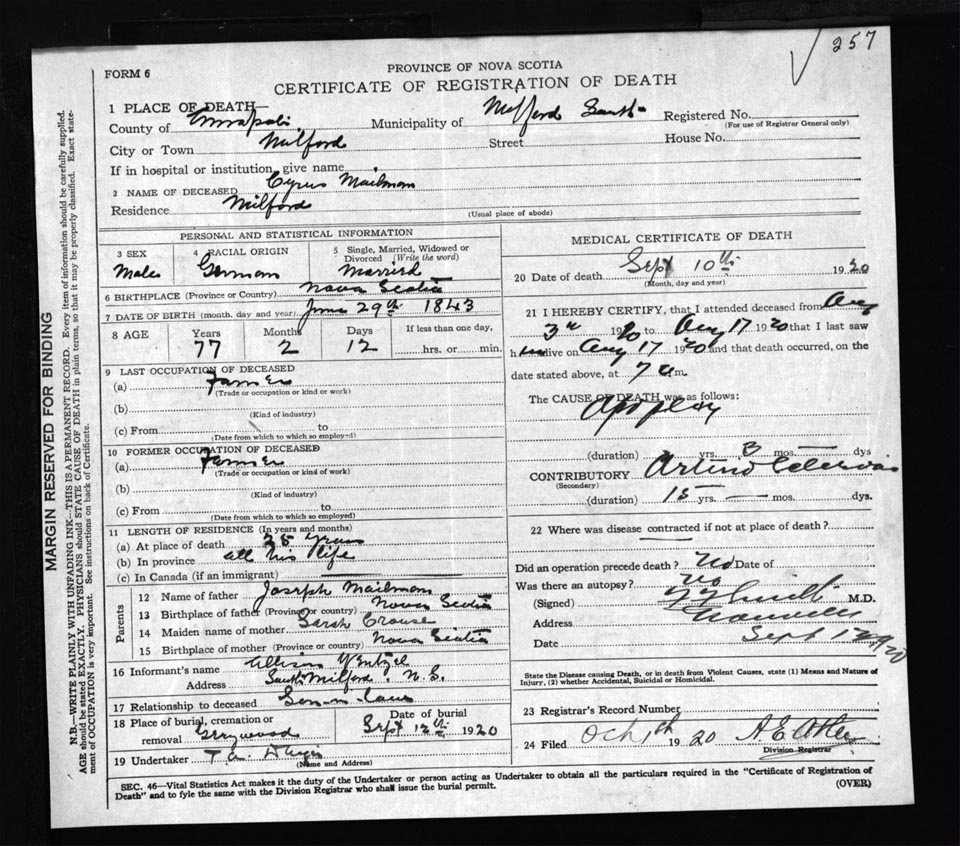 257
FORM 6
PROVINCE OF NOVA SCOTIA
CERTIFICATE OF REGISTRATION OF DEATH
1 PLACE OF DEATH—
County of Annapolis Municipality of Milford South Registered No.
(For use of Registrar General only)
City or Town Milford Street House No.
If in hospital or institution, give name
2 NAME OF DECEASED Cyrus Mailman
Residence Milford
(Usual place of abode)
PERSONAL AND STATISTICAL INFORMATION
3 SEX Male
4 RACIAL ORIGIN German
5 Single, Married, Widowed or Divorced (Write the word) Married
6 BIRTHPLACE (Province or Country) Nova Scotia
7 DATE OF BIRTH (month, day and year) June 29th 1843
8 AGE Years Months Days If less than one day,
77 2 12 hrs. or min.
9 LAST OCCUPATION OF DECEASED
(a) Farmer
(Trade or occupation or kind of work)
(b)
(Kind of industry)
(c) From to
(Date from which to which so employed)
10 FORMER OCCUPATION OF DECEASED
(a) Farmer
(Trade or occupation or kind of work)
(b)
(Kind of industry)
(c) From to
(Date from which so employed)
11 LENGTH OF RESIDENCE (In years and months)
(a) At place of death 25 years
(b) In province all his life
(c) In Canada (if an immigrant)
Parents
12 Name of father Joseph Mailman
13 Birthplace of father (Province or country) Nova Scotia
14 Maiden name of mother Sarah Crouse
15 Birthplace of mother (Province or country) Nova Scotia
16 Informant's name Allison Wentzel
Address South Milford. N. S.
17 Relationship to deceased Son-in-law
18 Place of burial, cremation or removal Greywood
Date of burial Sept 12th 1920
19 Undertaker T. A.
(Name and Address)
MEDICAL CERTIFICATE OF DEATH
20 Date of death Sept 10th 1920
(Month, day and year)
21 I HEREBY CERTIFY, that I attended deceased from Aug
3rd 1920 to Aug 17 1920 that I last saw
h im alive on Aug 17 1920 and that death occurred, on the
date stated above, at 7 a m.
The CAUSE OF DEATH was as follows:
Apoplexy
(duration) yrs. 3 mos. — dys
CONTRIBUTORY Arterio Sclerosis
(Secondary)
(duration) 15 yrs. — mos. dys.
22 Where was disease contracted if not at place of death?
Did an operation precede death? No Date of
Was there an autopsy? No
(Signed) M.D.
Address
Date Sept 1920
State the Disease causing Death, or in death from Violent Causes, state (1) Means and Nature of
Injury, (2) whether Accidental, Suicidal or Homicidal.
23 Registrar's Record Number
24 Filed Oct 1th 1920 A E
Division Registrar
SEC. 46—Vital Statistics Act makes it the duty of the Undertaker or person acting as Undertaker to obtain all the particulars required in the "Certificate of Registration of
Death" and to fyle the same with the Division Registrar who shall issue the burial permit. (OVER)
MARGIN RESERVED FOR BINDING
N.B.—WRITE PLAINLY WITH UNFADING INK—THIS IS A PERMANENT RECORD. Every item of information should be carefully supplied.
AGE should be stated EXACTLY. PHYSICIANS should STATE CAUSE OF DEATH in plain terms, so that it may be properly classified. Exact state-
ment of OCCUPATION is very important. See instructions on back of Certificate.